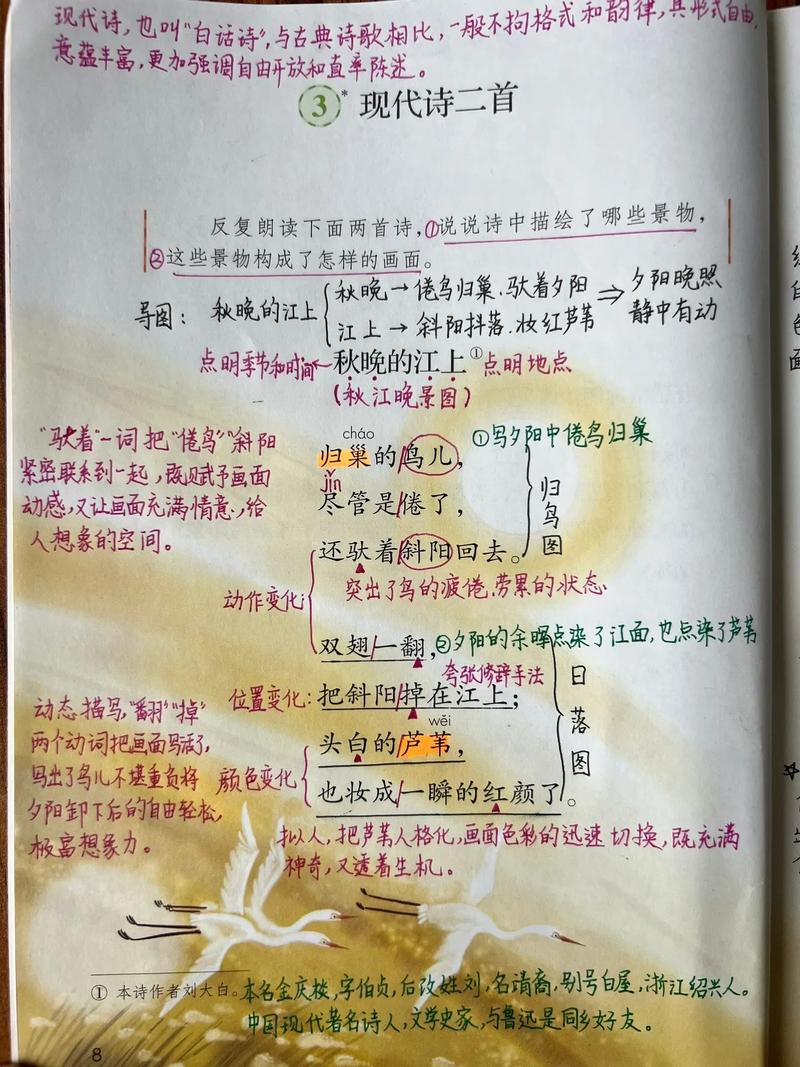 现代诗,也叫“白话诗”,与古典诗歌相比,一般不拘格式和韵律,其形式自由,
意蕴丰富,更加强调自由开放和直率陈述。
3* 现代诗二首
反复朗读下面两首诗,①说说诗中描绘了哪些景物,
②这些景物构成了怎样的画面。
导图: 秋晚的江上
秋晚→倦鸟归巢、驮着夕阳
江上→斜阳抖落、妆红芦苇
⇒夕阳晚照
静中有动
点明季节和时间←秋晚的江上①点明地点
(秋江晚景图)
“驮着”一词把“倦鸟”“斜阳
紧密联系到一起,既赋予画面
动感,又让画面充满情意,给
人想象的空间。
cháo
归巢的鸟儿,
①写夕阳中倦鸟归巢
jǐn
尽管是倦了,
还驮着斜阳回去。
归鸟图
突出了鸟的疲倦、劳累的状态
动作变化:
双翅一翻,
②夕阳的余晖点染了江面,也点染了芦苇
夸张修辞手法
位置变化:把斜阳掉在江上;
wěi
头白的芦苇,
颜色变化
也妆成一瞬的红颜了。
日落图
动态描写,“翻”“掉”
两个动词把画面写活了,
写出了鸟儿不堪重负将
夕阳卸下后的自由轻松,
极富想象力。
拟人,把芦苇人格化,画面色彩的迅速切换,既充满
神奇,又透着生机。
① 本诗作者刘大白。本名金庆棪,字伯贞,后改姓刘,名清裔,别号白屋,浙江绍兴人。
中国现代著名诗人,文学史家,与鲁迅是同乡好友。
8